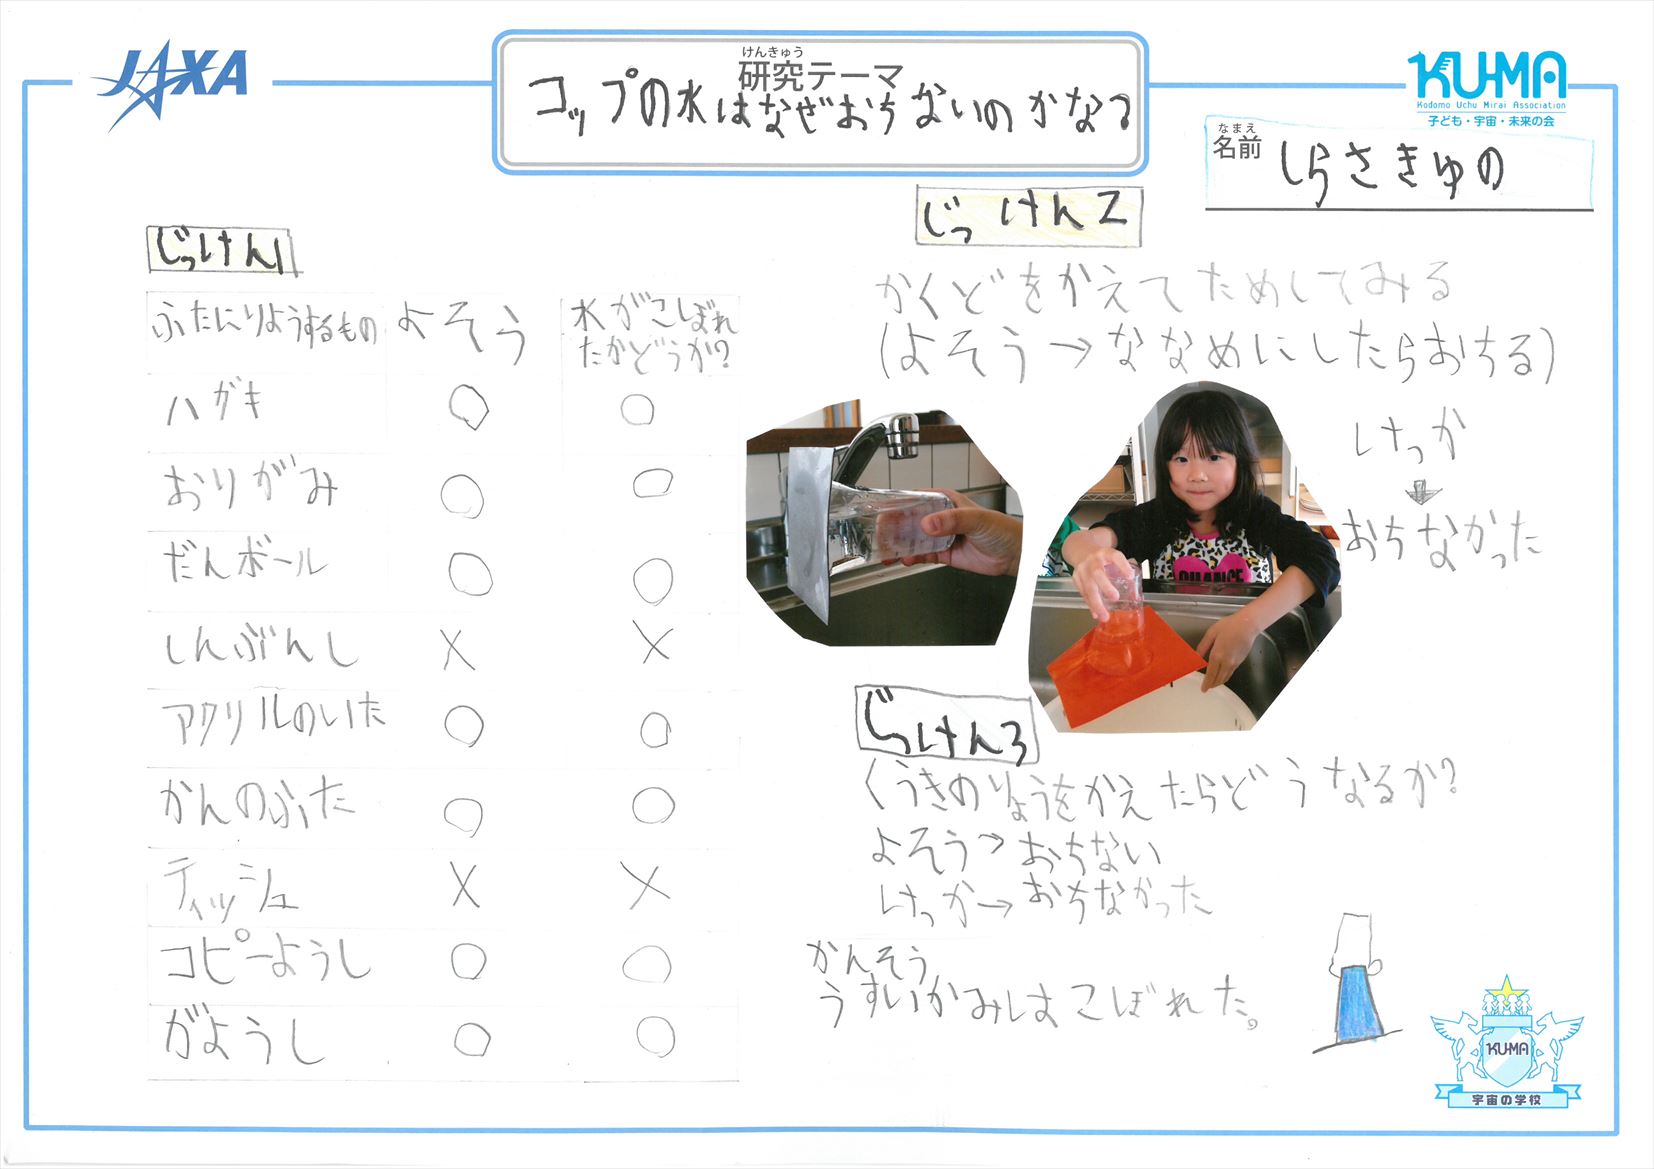 JAXA
けんきゅう
研究テーマ
コップの水はなぜおちないのかな?
KU-MA
Kodomo Uchu Mirai Association
子ども・宇宙・未来の会
なまえ
名前
しらさきゆの
じっけん1
ふたにりようするもの よそう 水がこぼれ
たかどうか?
ハガキ ○ ○
おりがみ ○ ○
だんボール ○ ○
しんぶんし × ×
アクリルのいた ○ ○
かんのふた ○ ○
ティッシュ × ×
コピーようし ○ ○
がようし ○ ○
じっけん2
かくどをかえてためしてみる
(よそう→ななめにしたらおちる)
けっか
↓
おちなかった
CHANCE
じっけん3
くうきのりょうをかえたらどうなるか?
よそう→おちない
けっか→おちなかった
かんそう
うすいかみはこぼれた。
KU-MA
宇宙の学校